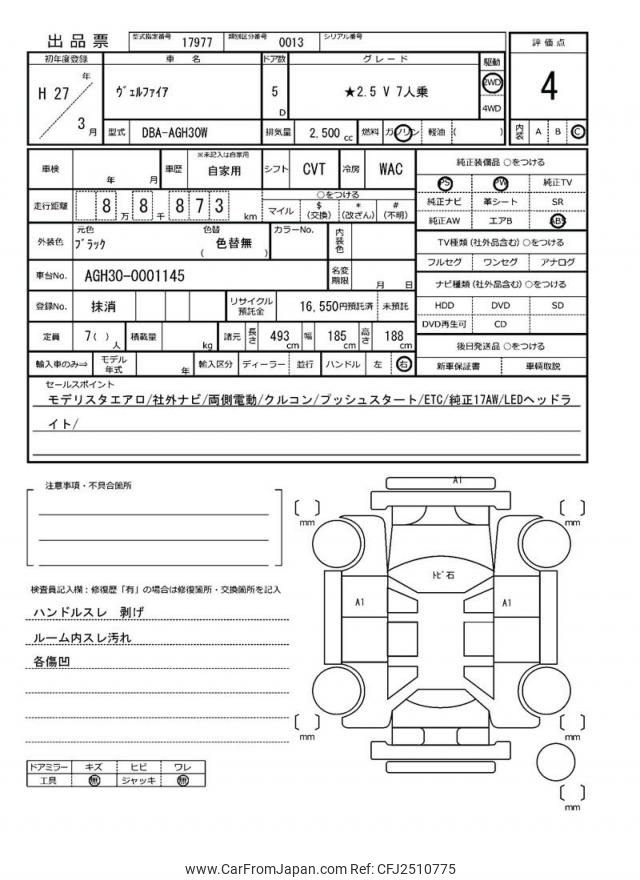 出品票 型式指定番号 17977 類別区分番号 0013 シリアル番号
評価点
4
内装 A B C
初年度登録 車名 ドア数 グレード 駆動
H 27 年 3 月 ヴェルファイア 5 D ★2.5 V 7人乗 2WD 4WD
型式 DBA-AGH30W 排気量 2,500 cc 燃料 ガソリン 軽油 ( )
車検 年 月 車歴 ※未記入は自家用 自家用 シフト CVT 冷房 WAC
走行距離 8 万 8 千 8 7 3 km ○をつける
マイル $(交換) *(改ざん) #(不明)
外装色 元色 ブラック 色替 ( 色替無 ) カラーNo. 内装色
車台No. AGH30-0001145 名変期限 月 日
登録No. 抹消 リサイクル預託金 16,550円預託済 未預託
定員 7( ) 人 積載量 kg 諸元 長さ 493 cm 幅 185 cm 高さ 188 cm
輸入車のみ⇒ モデル年式 年 輸入区分 ディーラー 並行 ハンドル 左 右
純正装備品 ○をつける
PS PW 純正TV
純正ナビ 革シート SR
純正AW エアB ABS
TV種類(社外品含む)○をつける
フルセグ ワンセグ アナログ
ナビ種類(社外品含む)○をつける
HDD DVD SD
DVD再生可 CD
後日発送品 ○をつける
新車保証書 車輌取説
セールスポイント
モデリスタエアロ/社外ナビ/両側電動/クルコン/プッシュスタート/ETC/純正17AW/LEDヘッドラ
イト/
注意事項・不具合箇所
検査員記入欄:修復歴「有」の場合は修復箇所・交換箇所を記入
ハンドルスレ 剥げ
ルーム内スレ汚れ
各傷凹
ドアミラー キズ ヒビ ワレ
工具 無 ジャッキ 無
A1
mm
mm
トビ石
A1
A1
mm
mm
mm
www.CarFromJapan.com Ref: CFJ2510775